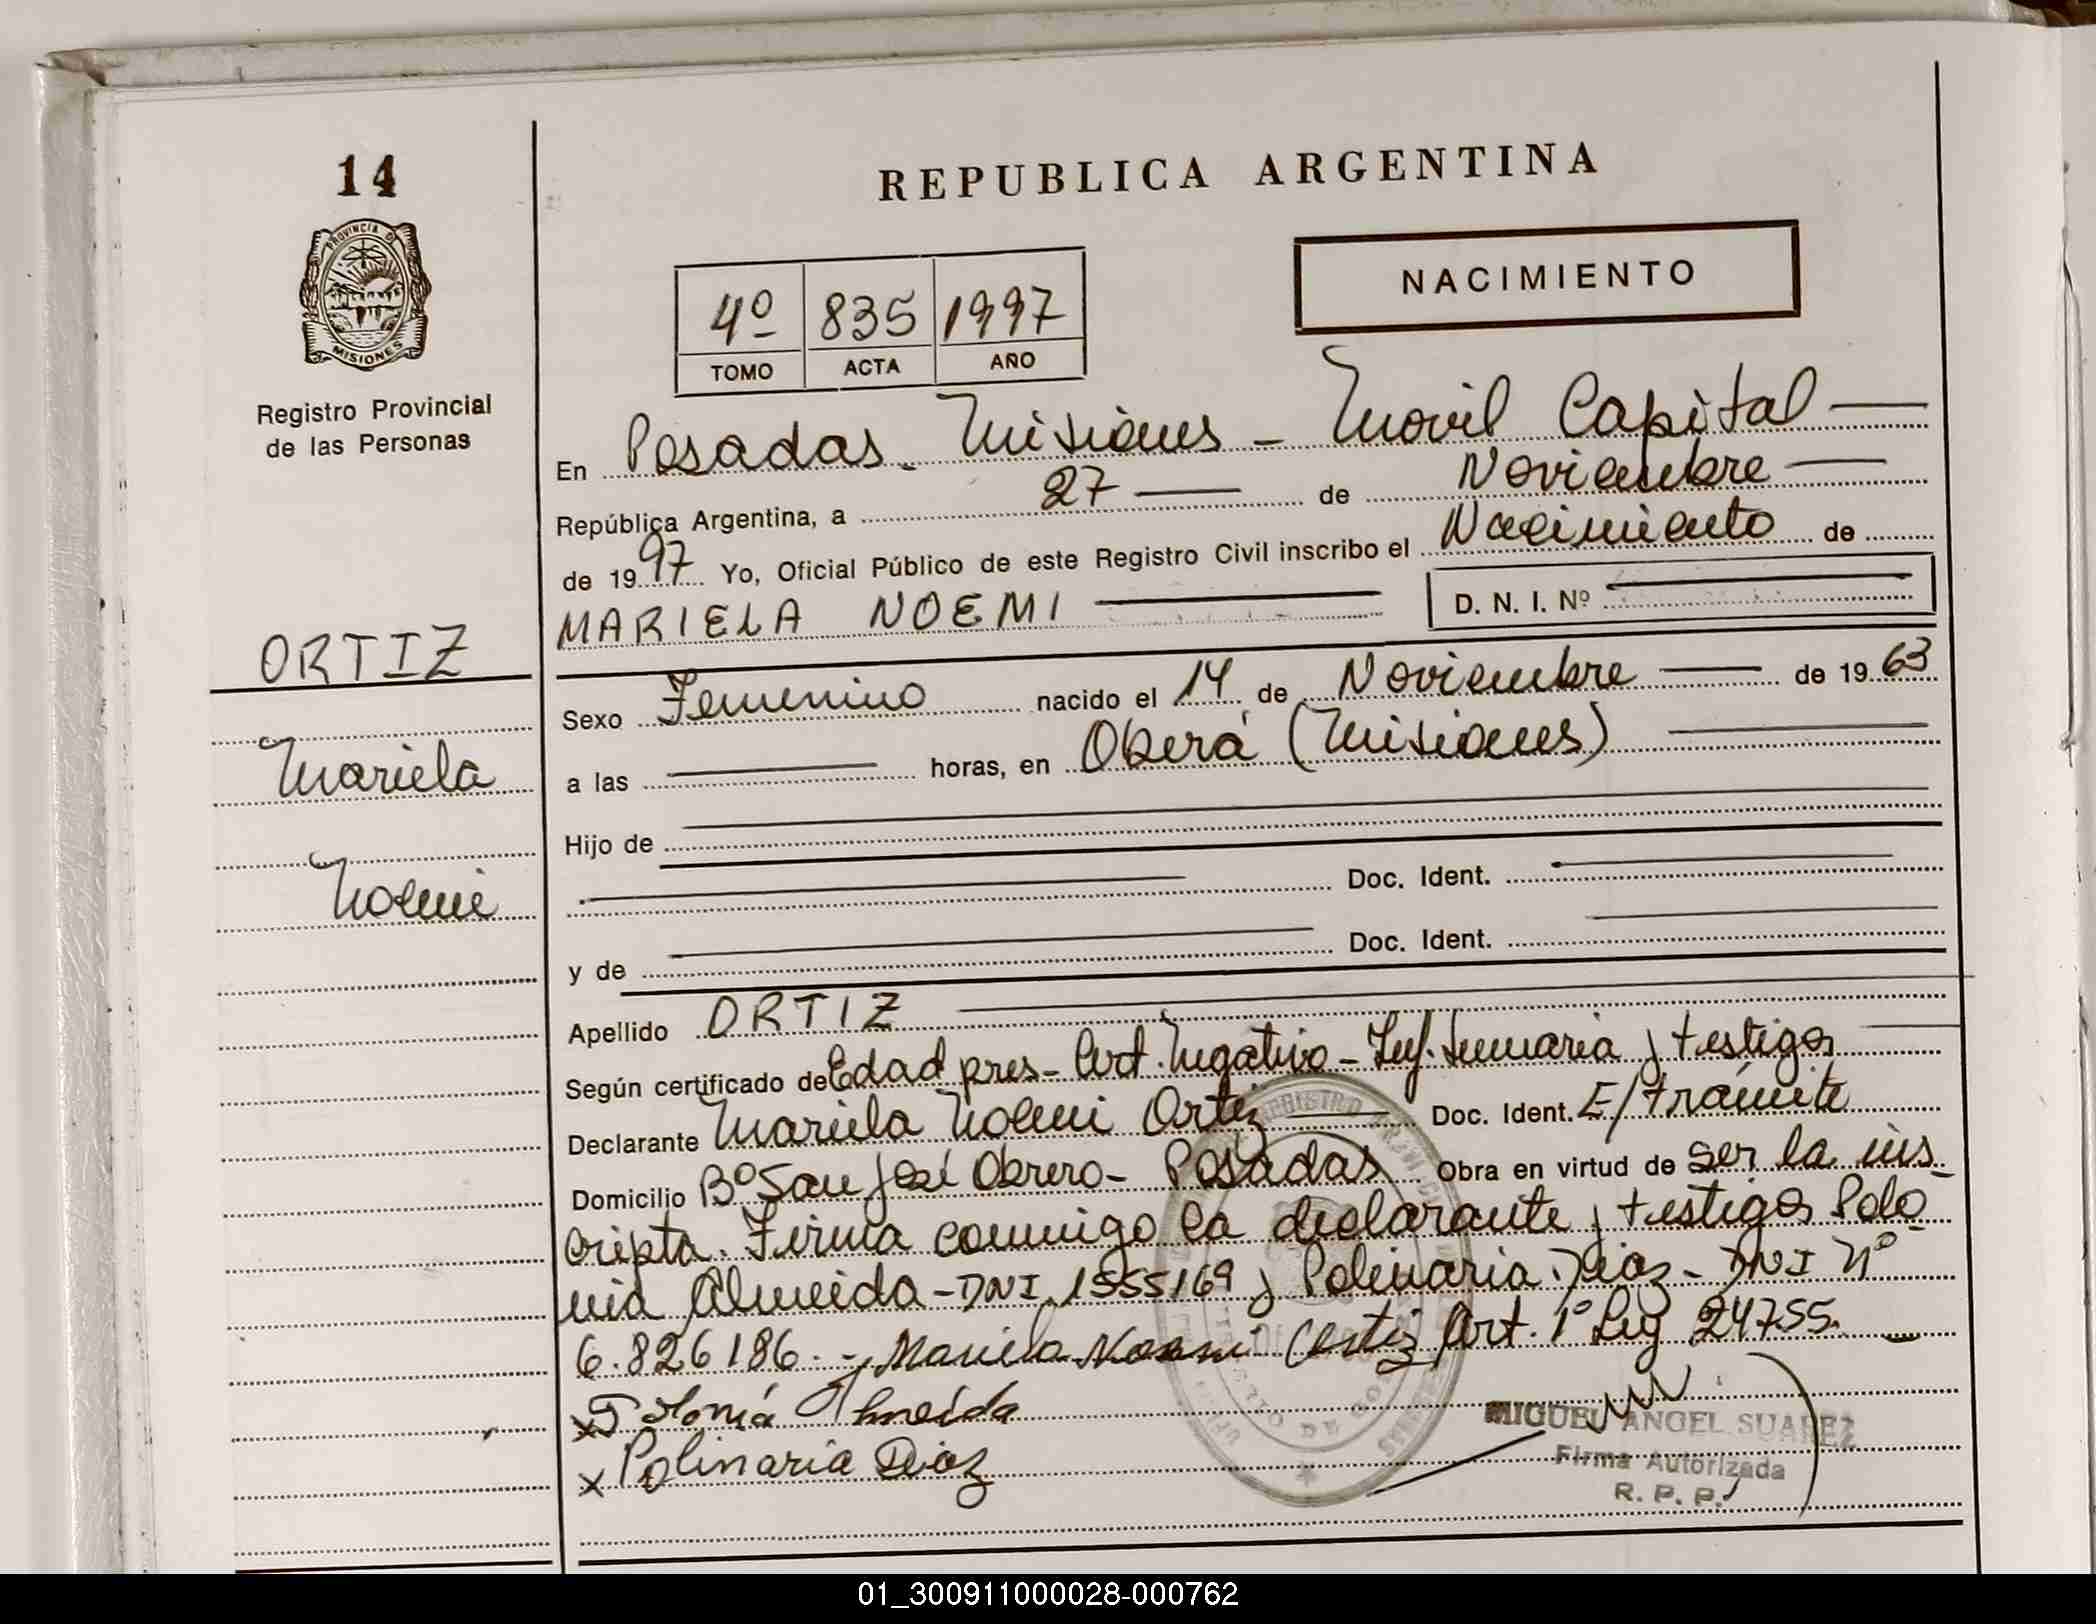 14
PROVINCIA DE
MISIONES
Registro Provincial
de las Personas
ORTIZ
Mariela
Noemi
REPUBLICA ARGENTINA
4º 835 1997
TOMO ACTA AÑO
NACIMIENTO
En Posadas - Misiones - Movil Capital
República Argentina, a 27 de Noviembre
de 1997 Yo, Oficial Público de este Registro Civil inscribo el Nacimiento de
MARIELA NOEMI D. N. I. Nº
Sexo Femenino nacido el 14 de Noviembre de 1963
a las horas, en Oberá (Misiones)
Hijo de
Doc. Ident.
y de Doc. Ident.
Apellido ORTIZ
Según certificado de Edad pres - Cert. Negativo - Inf. Sumaria y testigos
Declarante Mariela Noemi Ortiz Doc. Ident. E/trámite
Domicilio Bº San José Obrero - Posadas Obra en virtud de ser la ins
cripta. Firma conmigo la declarante y testigos Polo
nia Almeida - DNI 1555169 y Polinaria Diaz - DNI Nº
6.826186. - Mariela Noemi Ortiz Art. 1º Ley 24755.
x Polonia Almeida
x Polinaria Diaz
MIGUEL ANGEL SUAREZ
Firma Autorizada
R. P. P.
01_300911000028-000762